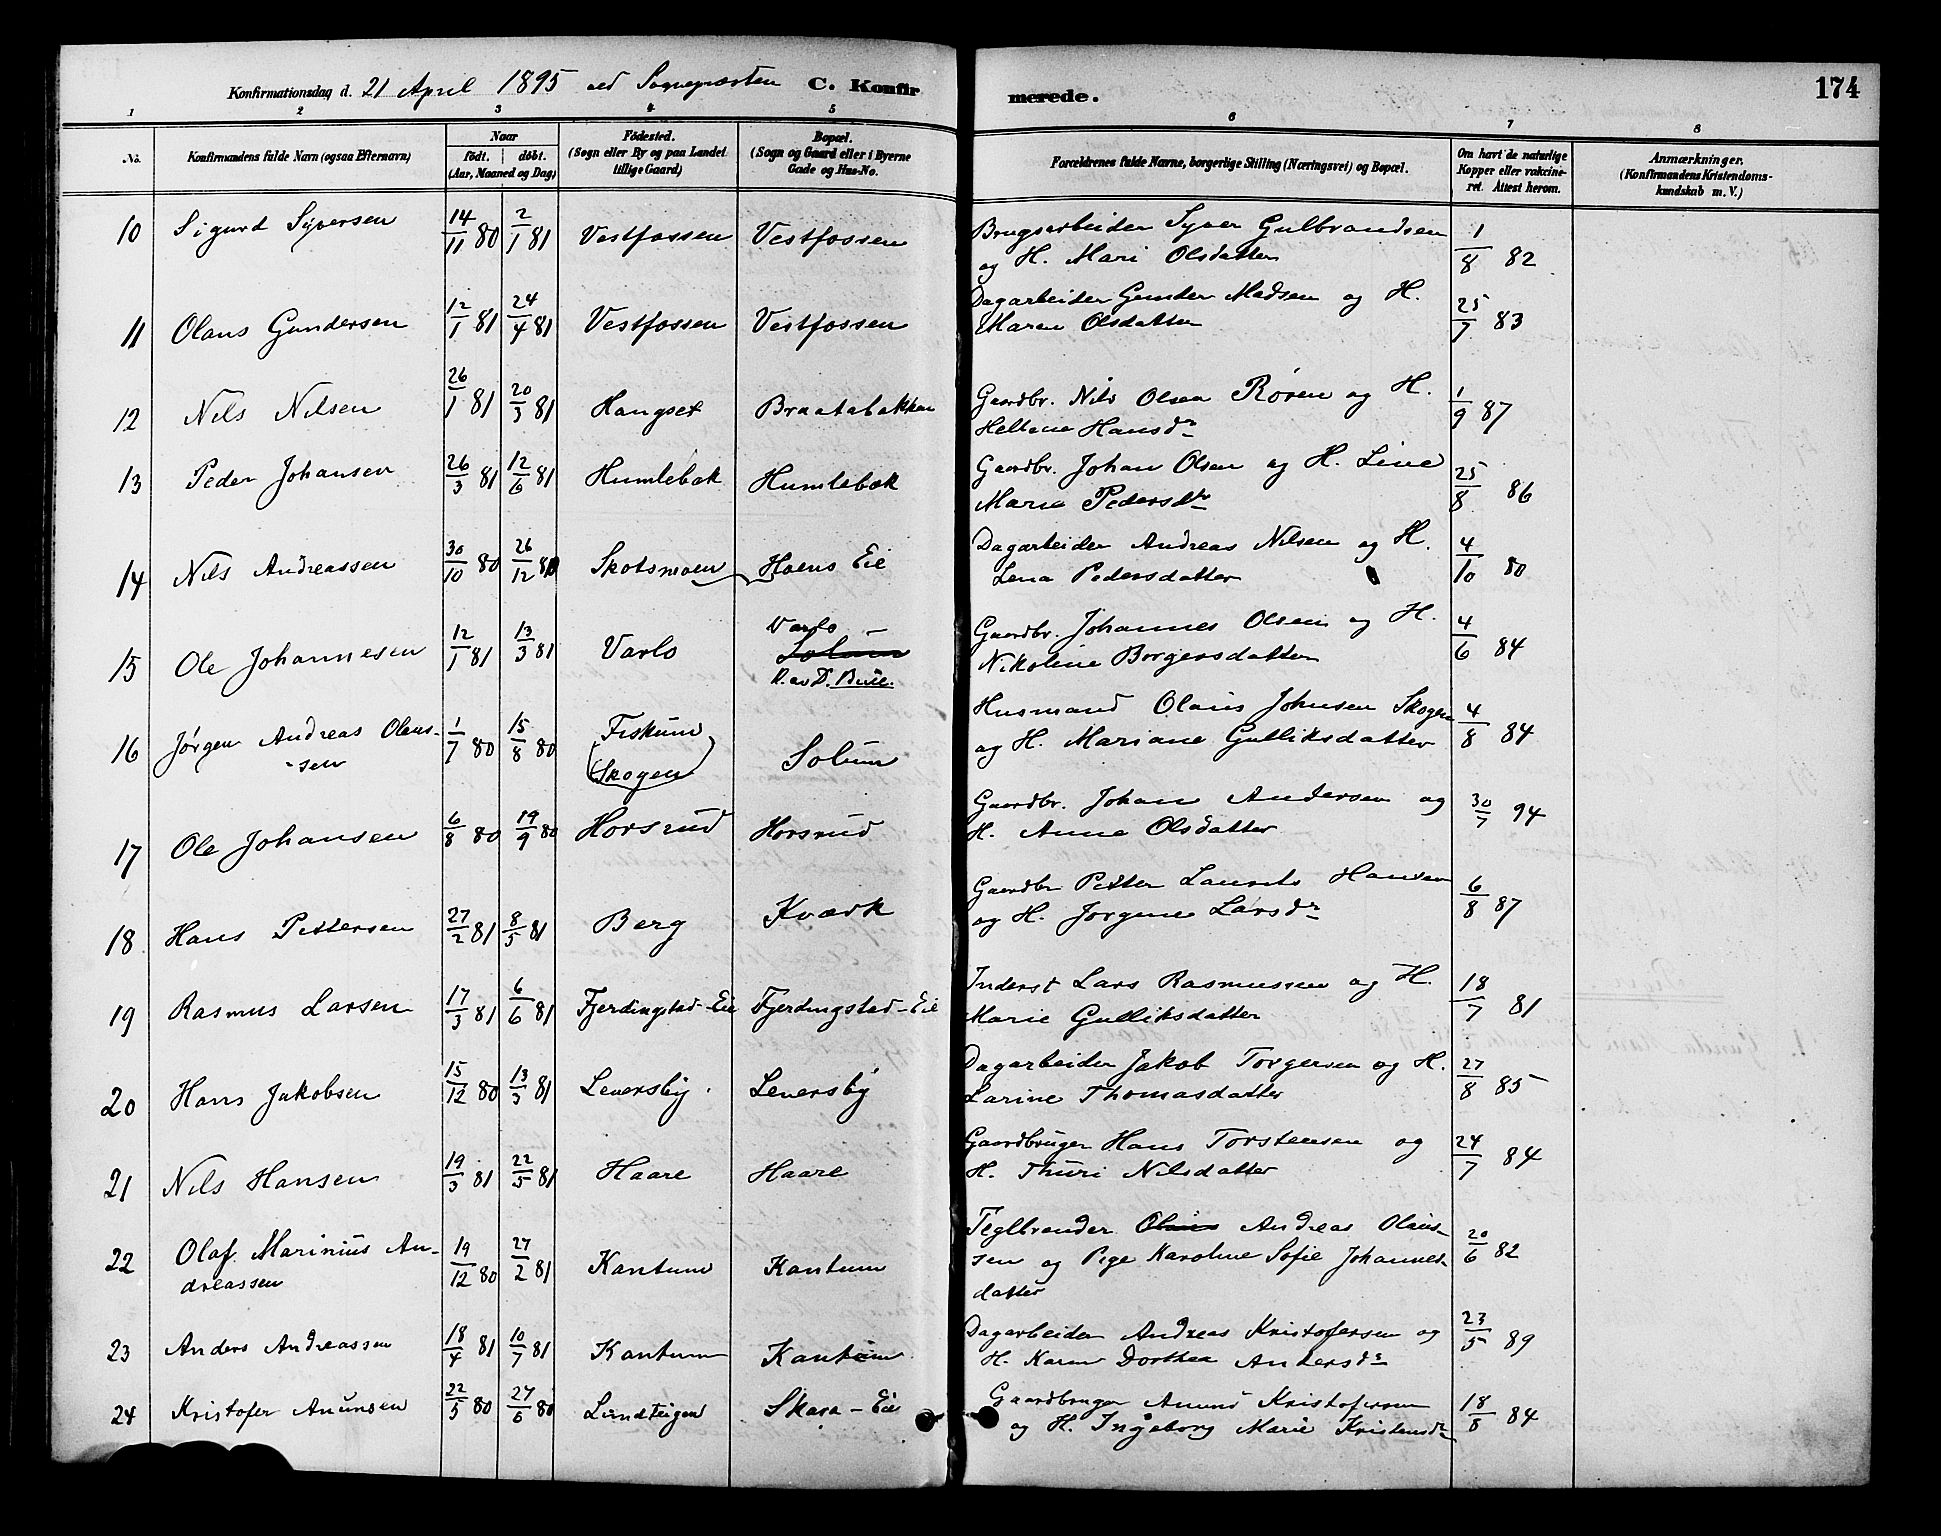 Konfirmationsdag d. 21 April 1895 ved Sognepræsten C. Konfirmerede. 174
1 2 3 4 5 6 7 8
No. Konfirmandens fulde Navn (ogsaa Efternavn) Naar født. døbt. (Aar, Maaned og Dag) Fødested. (Sogn eller By og paa Landet tillige Gaard) Bopæl. (Sogn og Gaard eller i Byerne Gade og Hus-No. Forældrenes fulde Navne, borgerlige Stilling (Næringsvei) og Bopæl. Om havt de naturlige Kopper eller vakcineret. Attest herom. Anmærkninger. (Konfirmandens Kristendomskundskab m. V.)
10 Sigurd Syversen 14/11 80 2/1 81 Vestfossen Vestfossen Brugsarbeider Syver Gulbrandsen 1/8 82
og H. Mari Olsdatter
11 Olaus Gundersen 12/1 81 24/4 81 Vestfossen Vestfossen Dagarbeider Gunder Madsen og H. 25/7 83
Maren Olsdatter
12 Nils Nilsen 26/1 81 20/3 81 Hangset Braatabakken Gaardbr. Nils Olsen Røren og H. 1/9 87
Hellene Hansdr
13 Peder Johansen 26/3 81 12/6 81 Humlebæk Humlebæk Gaardbr. Johan Olsen og H. Line 25/8 86
Marie Pedersdtr
14 Nils Andreassen 30/10 80 26/12 80 Skotsmoen Hoens Eie Dagarbeider Andreas Nilsen og H. 4/10 80
Lena Pedersdatter
15 Ole Johannesen 12/1 81 13/3 81 Varlo Varlo Solum Gaardbr. Johannes Olsen og H. 4/6 84
Nikoline Borgersdatter
16 Jørgen Andreas Olaus- 1/7 80 15/8 80 Fiskum Solum Husmand Olaus Johnsen Skogen 4/8 84
-sen (Skogen) og H. Mariane Gulliksdatter
17 Ole Johansen 6/8 80 19/9 80 Horsrud Horsrud Gaardbr. Johan Andersen og 30/7 94
H. Anne Olsdatter
18 Hans Pettersen 27/2 81 8/5 81 Berg Kværk Gaardbr Petter Laurits Hansen 6/8 87
og H. Jørgine Larsdr
19 Rasmus Larsen 17/3 81 6/6 81 Fjerdingstad-Eie Fjerdingstad-Eie Inderst Lars Rasmussen og H. 18/7 81
Marie Gulliksdatter
20 Hans Jakobsen 15/12 80 13/3 81 Leversby Leversby Dagarbeider Jakob Torgersen og H. 27/8 85
Larine Thomasdatter
21 Nils Hansen 19/3 81 22/5 81 Haare Haare Gaardbruger Hans Torstensen og 24/7 84
H. Thuri Nilsdatter
22 Olaf Marinius An- 19/12 80 27/2 81 Kantum Kantum Teglbrender Olaus Andreas Olaus- 20/6 82
dreassen sen og Pige Karoline Sofie Johannes-
datter
23 Anders Andreassen 18/4 81 10/7 81 Kantum Kantum Dagarbeider Andreas Kristofersen og 23/5 89
H. Karen Dorthea Andersdr
24 Kristofer Anunsen 22/5 80 27/6 80 Lundteigen Skara-Eie Gaardbruger Anund Kristofersen 18/8 84
og H. Ingeborg Marie Kristensdr